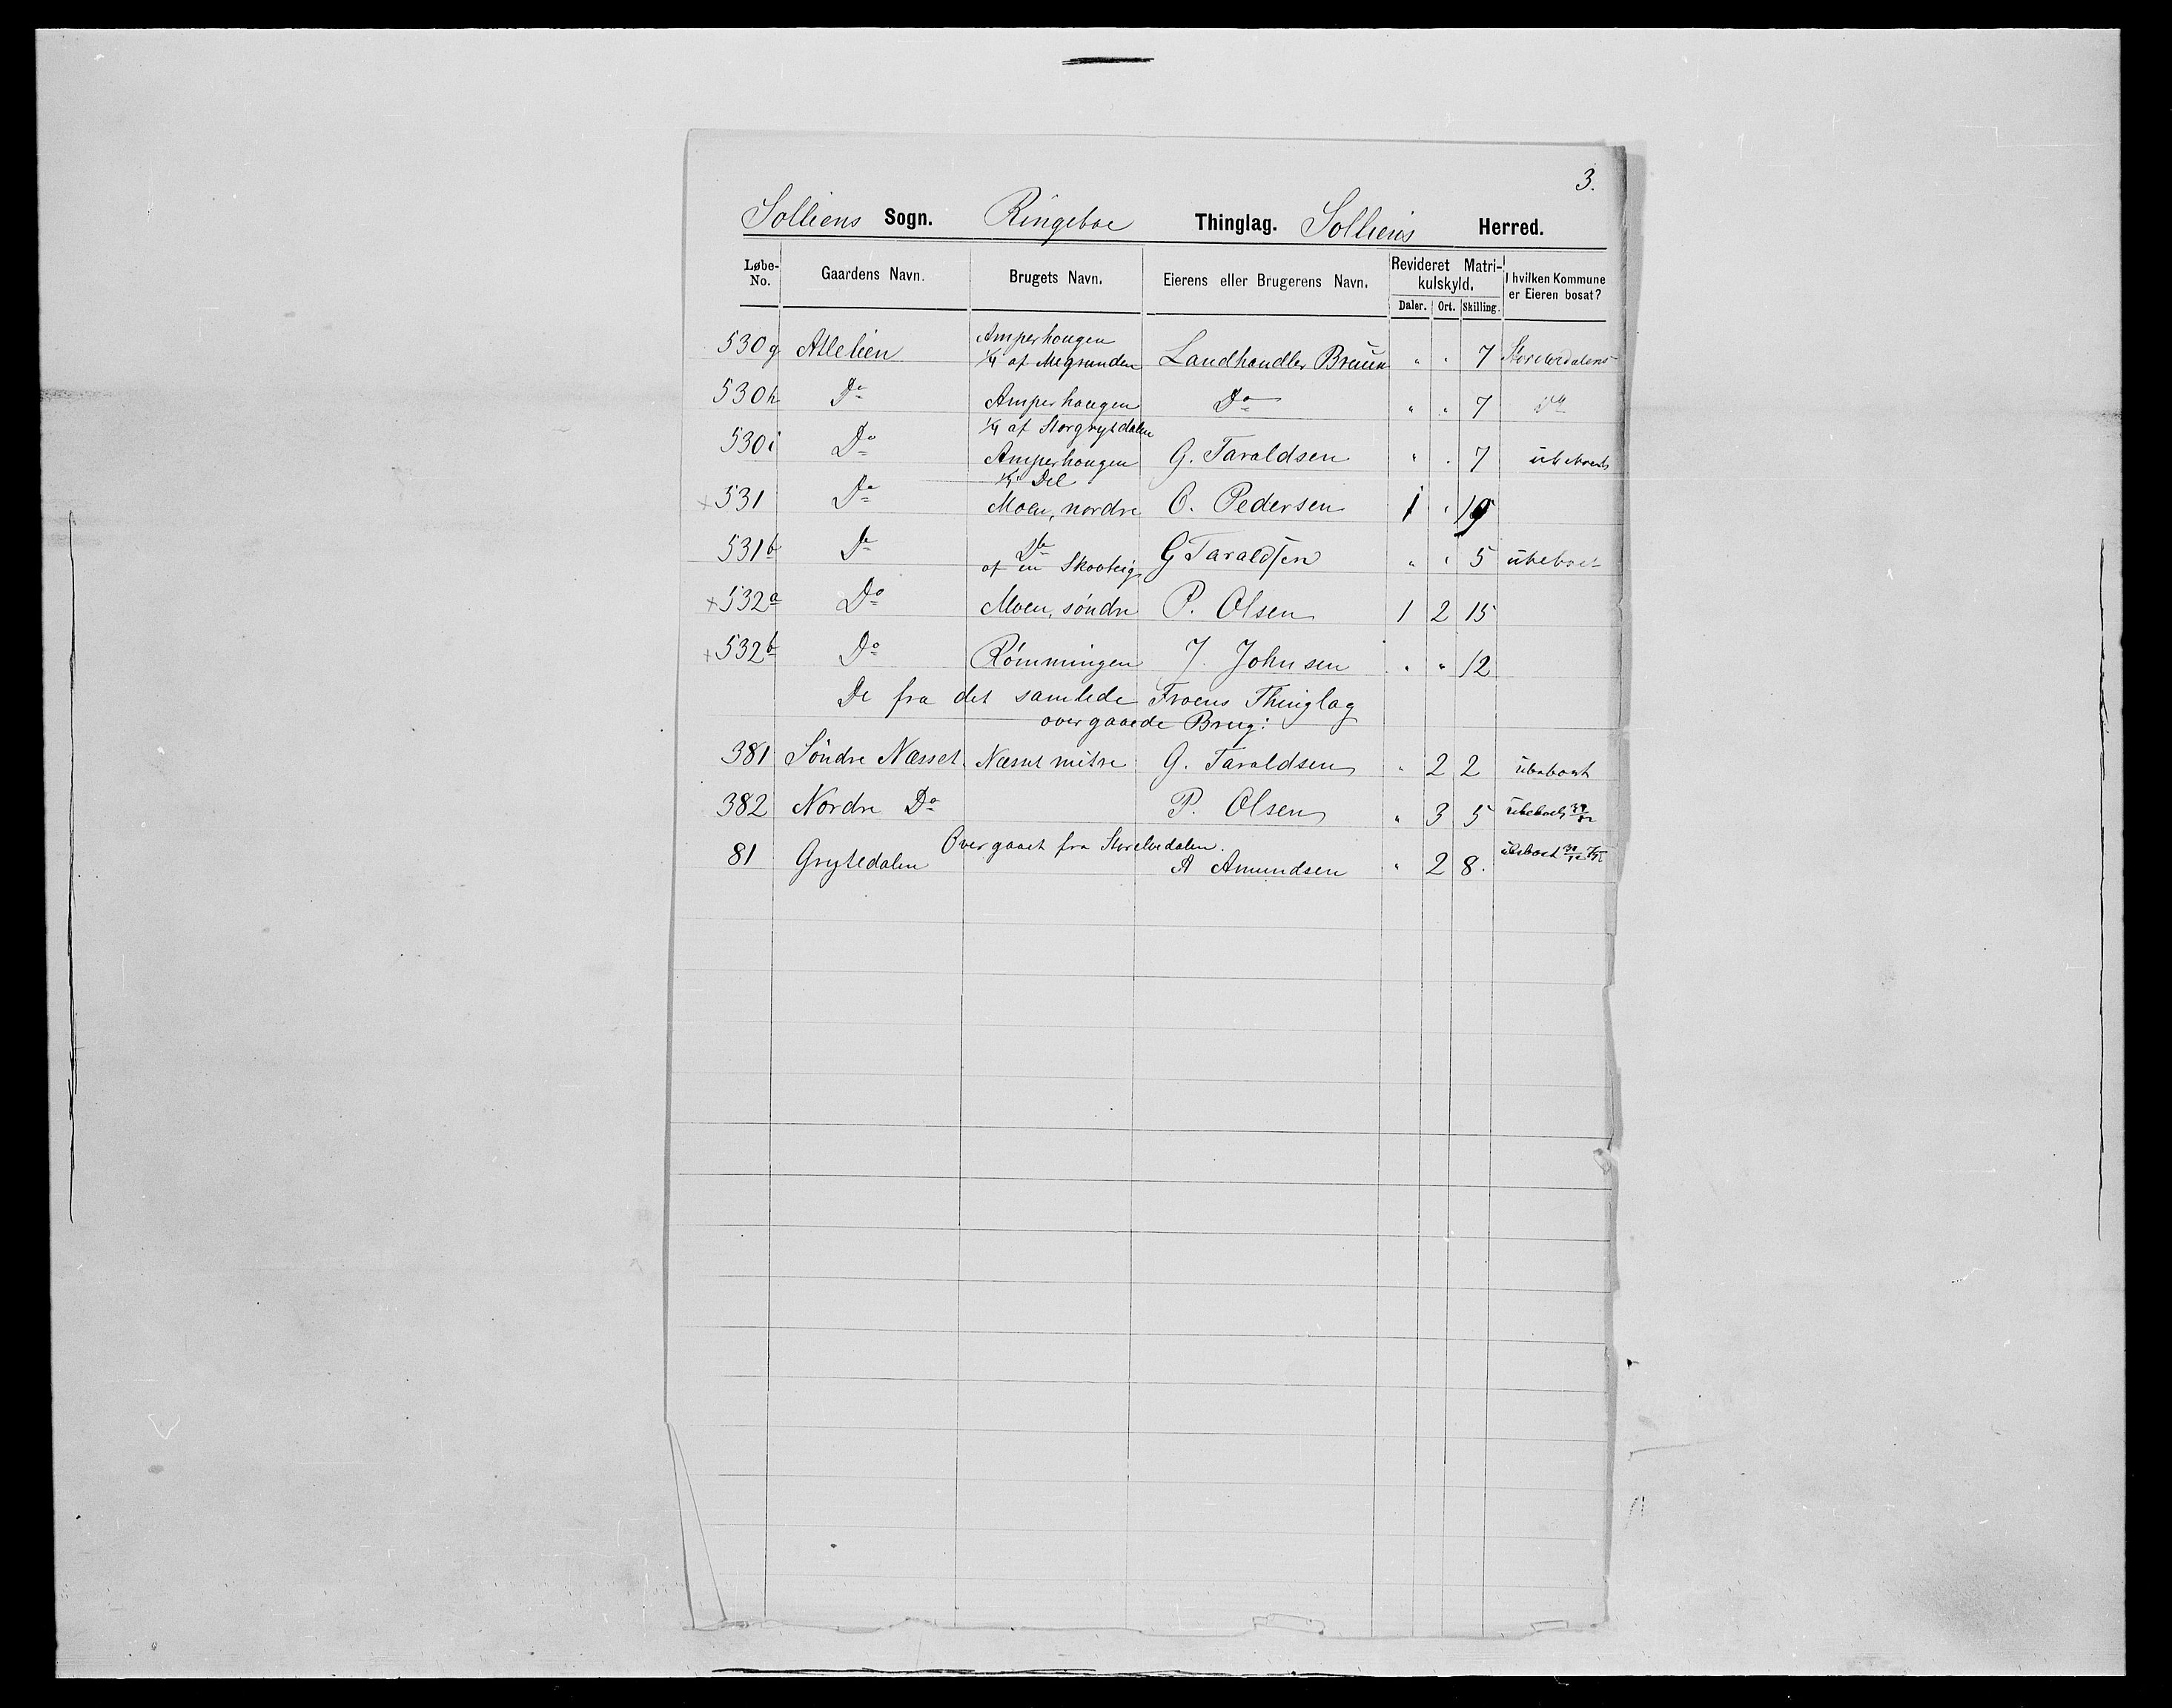 3.
Solliens Sogn. Ringeboe Thinglag. Solliens Herred.
Løbe-No. Gaardens Navn. Brugets Navn. Eierens eller Brugerens Navn. Revideret Matrikulskyld. I hvilken Kommune er Eieren bosat?
Daler. Ort. Skilling.
530g Atlelien Amperhougen 1/4 af Megrunden Landhandler Braun " " 7 Storelvedalens
530h Do Amperhaugen 1/4 af Storgrytdalen Do " " 7 Do
530i Do Amperhougen 1/4 Del G. Taraldsen " " 7 ubeboet
×531 Do Moen, nordre O. Pedersen 1 " 19
531b Do Do af en Skovteig G Taraldsen " " 5 ubeboet
×532a Do Moen, søndre P. Olsen 1 2 15
×532b Do Rømmingen J. Johnsen " " 12
De fra det samlede Froens Thinglag
overgaaede Brug:
381 Søndre Næsset Næsset mitre G. Taraldsen " 2 2 ubeboet
382 Nordre Do P. Olsen " 3 5 ubeboet
Overgaaet fra Storelvedalen.
81 Grytledalen A Amundsen " 2 8. ubeboet